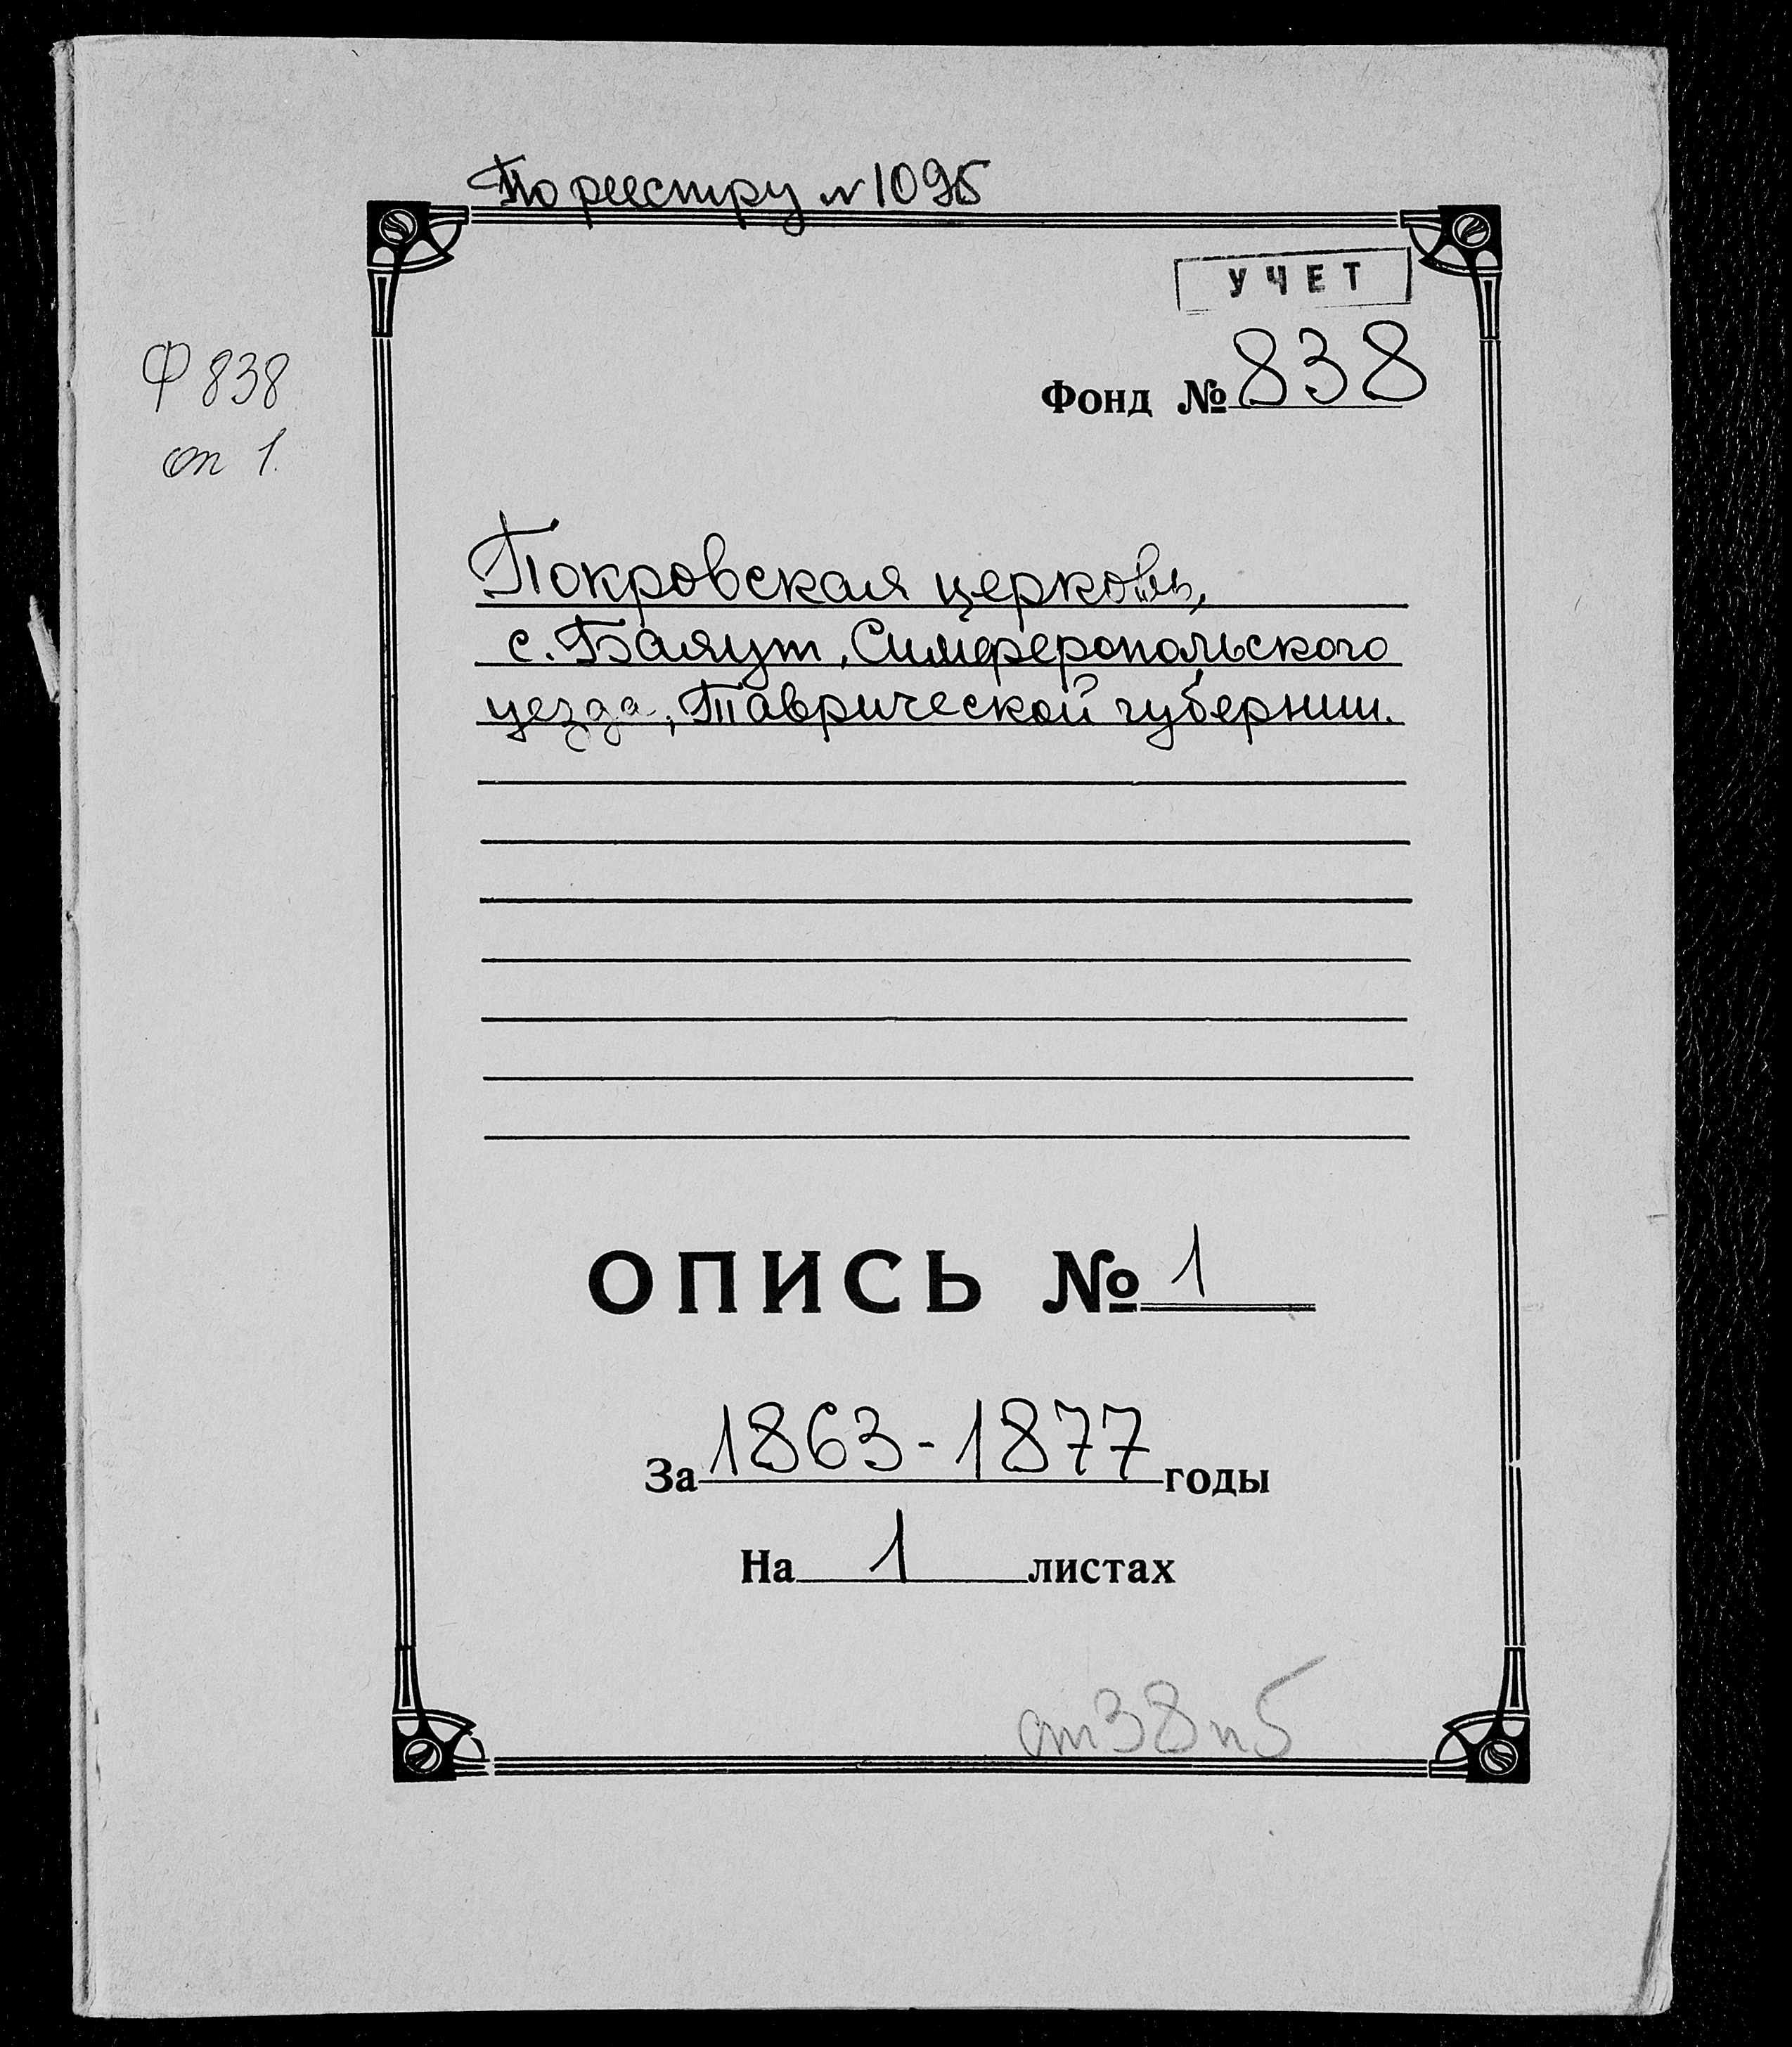 По реестру N 1095
УЧЕТ
Ф 838
оп 1.
Фонд № 838
Покровская церковь,
с. Баяут, Симферопольского
уезда, Таврической губернии.
ОПИСЬ № 1
За 1863-1877 годы
На 1 листах
ст 38 п 5